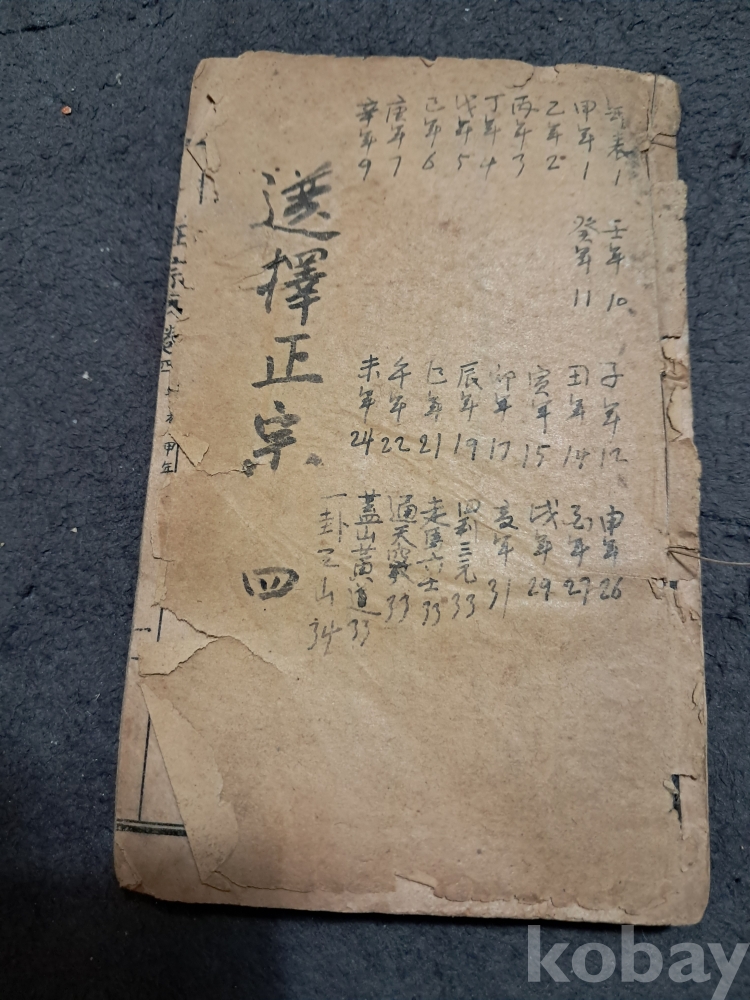 年表1
甲年1
乙年2
丙年3
丁年4
戊年5
己年6
庚年7
辛年9
壬年10
癸年11
子年12
丑年14
寅年15
卯年17
辰年19
巳年21
午年22
未年24
申年26
酉年27
戌年29
亥年31
四利三元33
走馬六壬33
通天竅33
蓋山黄道33
一卦之山34
選擇正宗 四
正宗
卷四
甲年
kobay